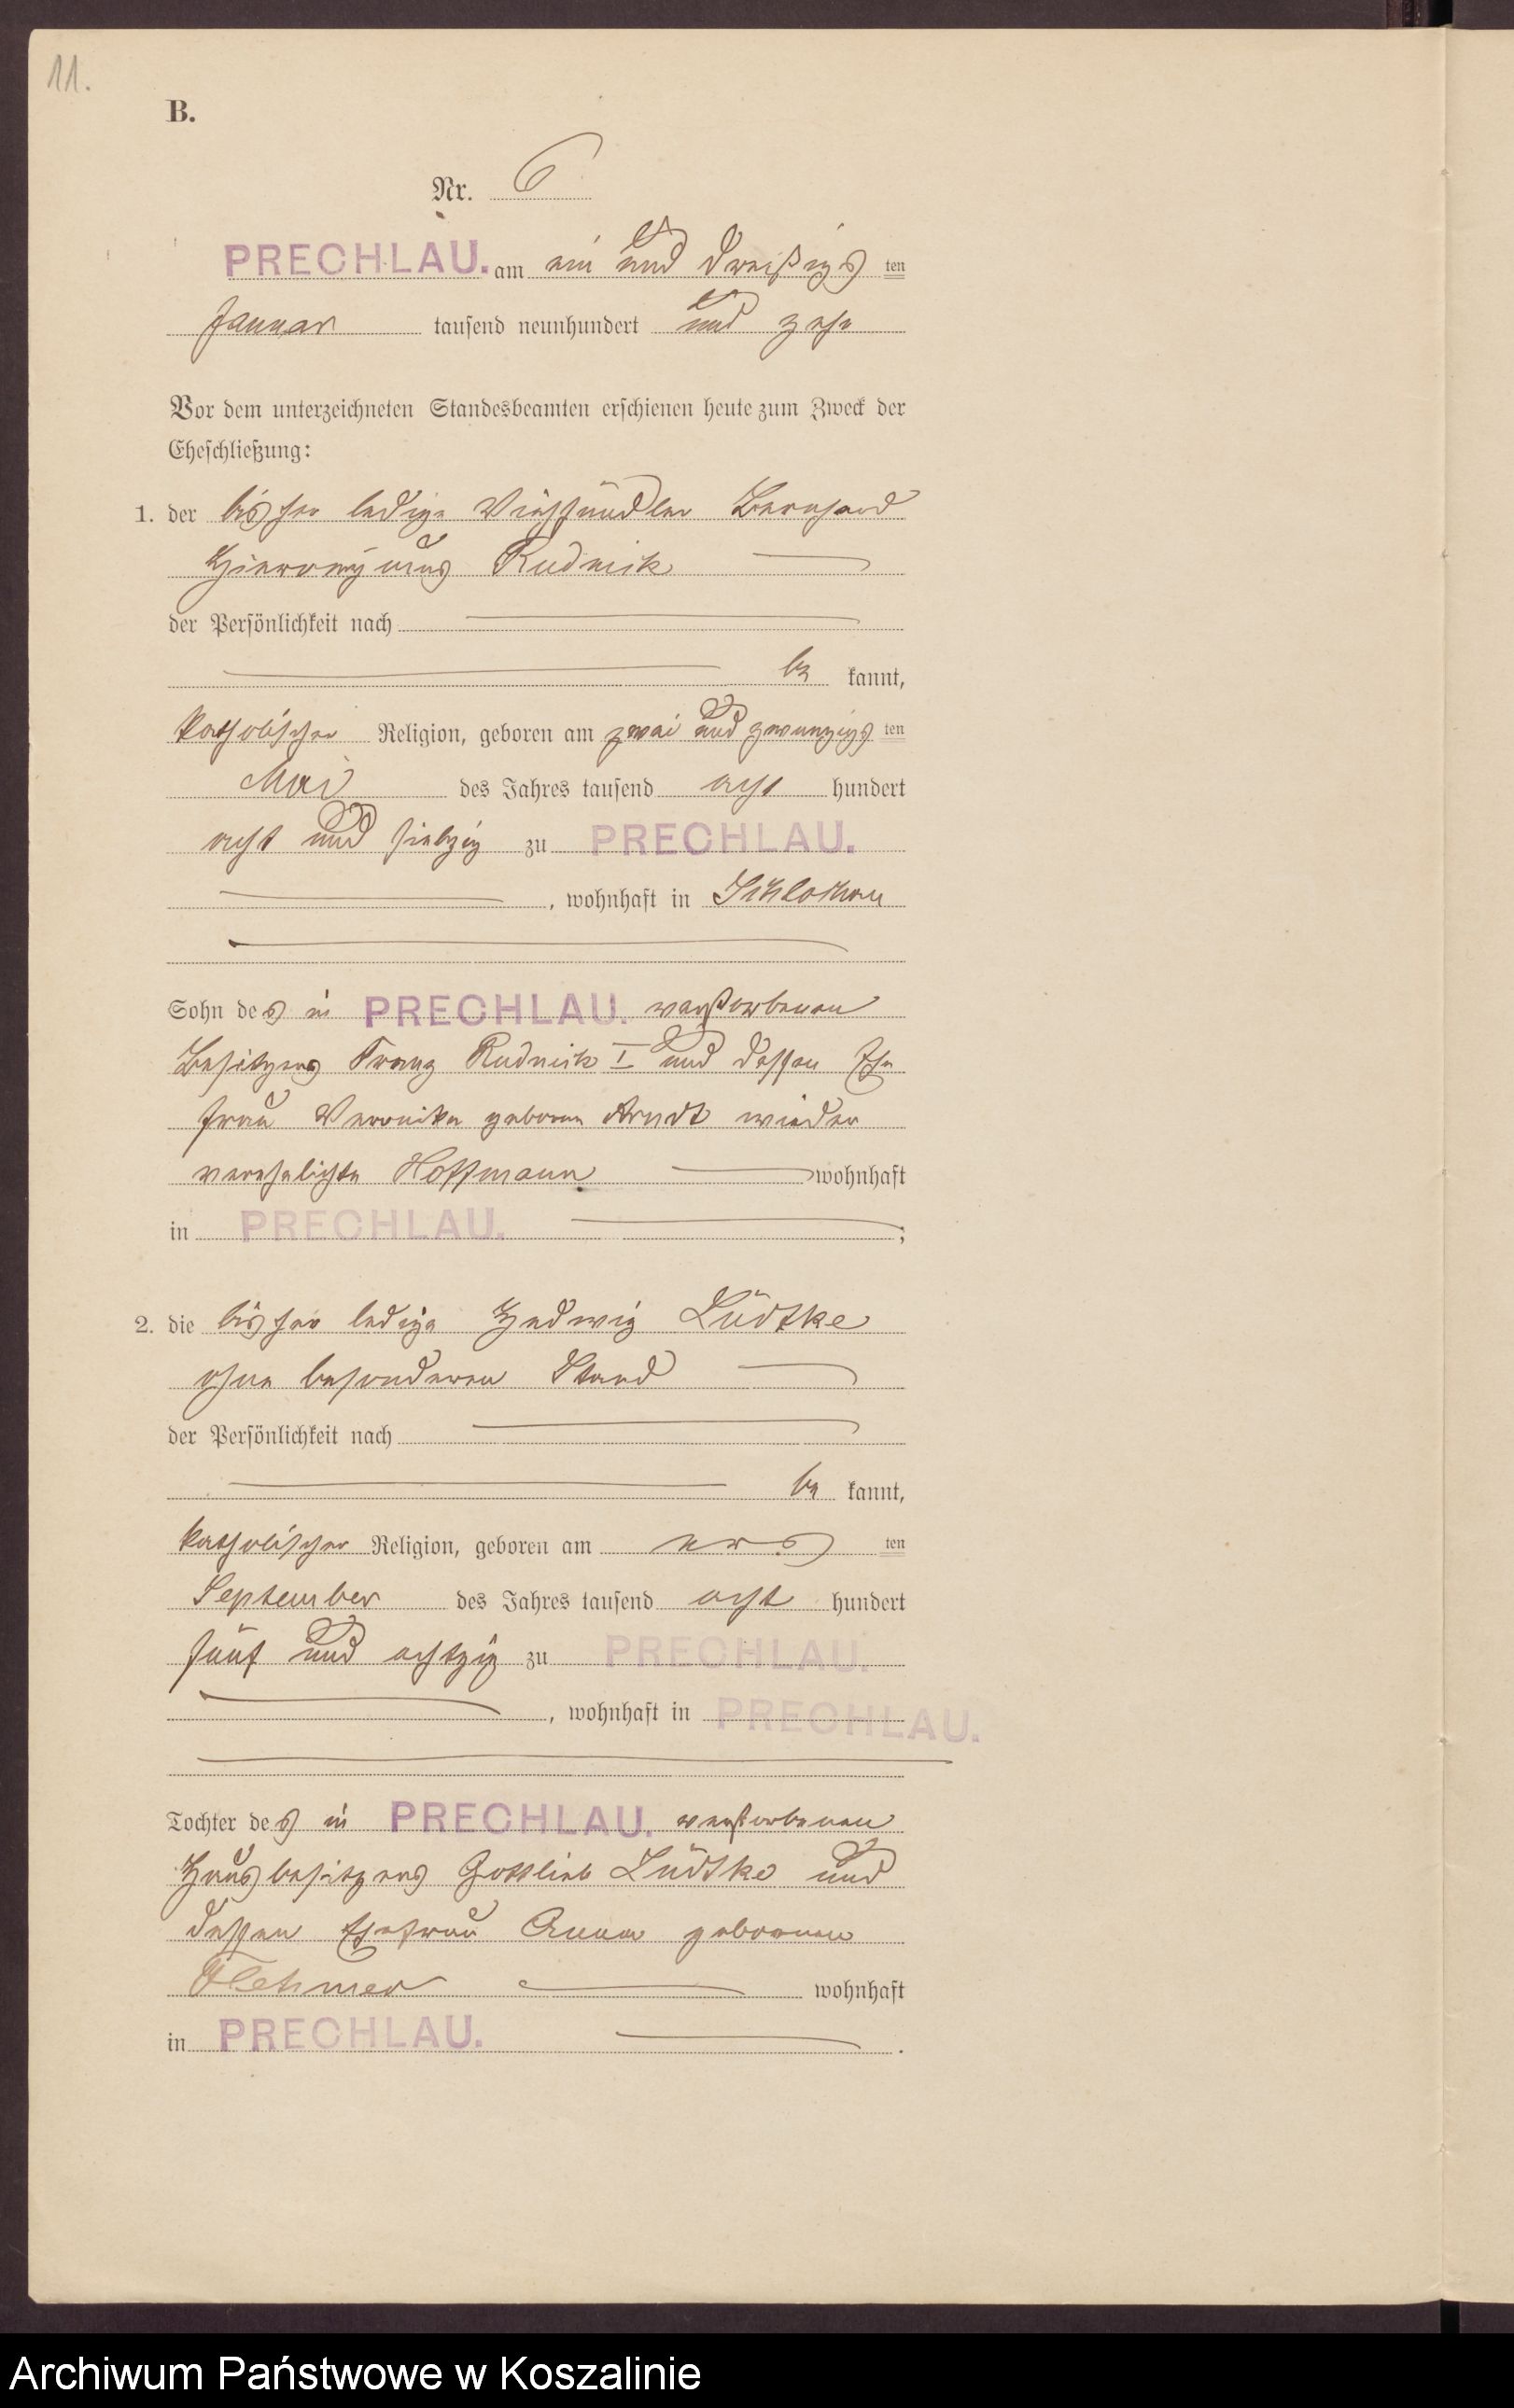 11.
B.
Nr. 6
PRECHLAU. am ein und dreißigs ten
Januar tausend neunhundert und zehn
Vor dem unterzeichneten Standesbeamten erschienen heute zum Zweck der
Eheschließung:
1. der bisher ledige Viehhändler Bernhard
Hieronymus Rudnik
der Persönlichkeit nach
be kannt,
katholischer Religion, geboren am zwei und zwanzigs ten
Mai des Jahres tausend acht hundert
acht und siebzig zu PRECHLAU.
, wohnhaft in Schlochau
Sohn des in PRECHLAU. verstorbenen
Besitzers Franz Rudnik I und dessen Ehe
frau Veronika geborene Arndt wieder
verehelichte Hoffmann wohnhaft
in PRECHLAU. ;
2. die bisher ledige Hedwig Lüdtke
ohne besonderen Stand
der Persönlichkeit nach
be kannt,
katholischer Religion, geboren am ten
September des Jahres tausend acht hundert
fünf und achtzig zu PRECHLAU.
, wohnhaft in PRECHLAU.
Tochter des in PRECHLAU. verstorbenen
Hausbesitzers Gottlieb Lüdtke und
dessen Ehefrau Anna geborenen
wohnhaft
in PRECHLAU. .
Archiwum Państwowe w Koszalinie